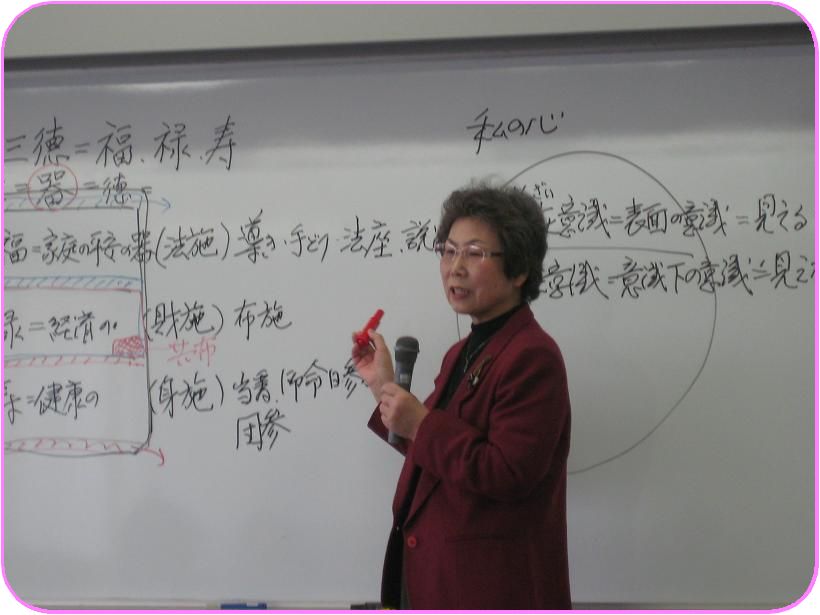 三徳=福、禄、寿
=器=徳
福=家庭の平安の器(法施)導き・手どり・法座、説
禄=経済の〃(財施)布施
共布
寿=健康の(身施)当番、命日参
団参
私の心
在意識=表面の意識=見える
意識=意識下の意識=見え